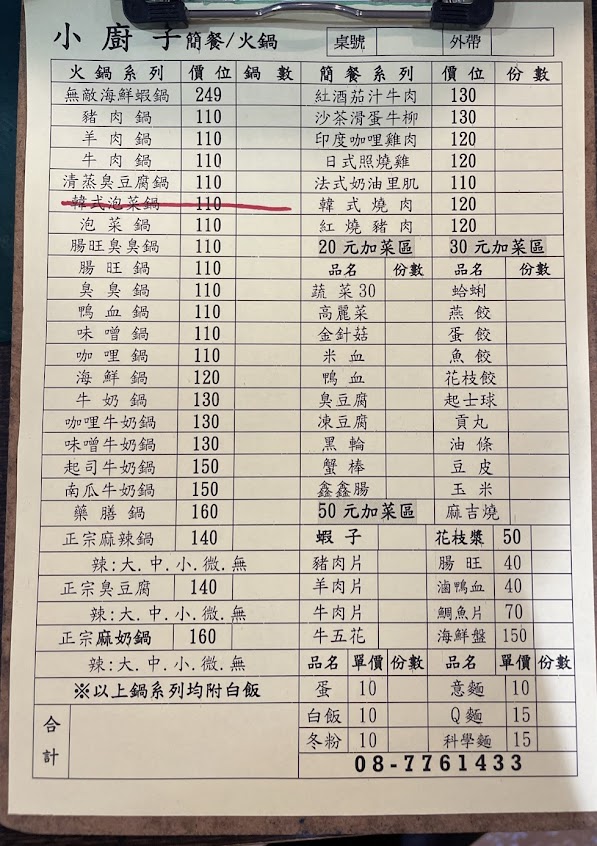 小廚子簡餐/火鍋 桌號 外帶
火鍋系列 價位 鍋數 簡餐系列 價位 份數
無敵海鮮蝦鍋 249 紅酒茄汁牛肉 130
豬肉鍋 110 沙茶滑蛋牛柳 130
羊肉鍋 110 印度咖哩雞肉 120
牛肉鍋 110 日式照燒雞 120
清蒸臭豆腐鍋 110 法式奶油里肌 110
韓式泡菜鍋 110 韓式燒肉 120
泡菜鍋 110 紅燒豬肉 120
腸旺臭臭鍋 110 20元加菜區 30元加菜區
腸旺鍋 110 品名 份數 品名 份數
臭臭鍋 110 蔬菜30 蛤蜊
鴨血鍋 110 高麗菜 燕餃
味噌鍋 110 金針菇 蛋餃
咖哩鍋 110 米血 魚餃
海鮮鍋 120 鴨血 花枝餃
牛奶鍋 130 臭豆腐 起士球
咖哩牛奶鍋 130 凍豆腐 貢丸
味噌牛奶鍋 130 黑輪 油條
起司牛奶鍋 150 蟹棒 豆皮
南瓜牛奶鍋 150 鑫鑫腸 玉米
藥膳鍋 160 50元加菜區 麻吉燒
正宗麻辣鍋 140 蝦子 花枝漿 50
辣:大.中.小.微.無 豬肉片 腸旺 40
正宗臭豆腐 140 羊肉片 滷鴨血 40
辣:大.中.小.微.無 牛肉片 鯛魚片 70
正宗麻奶鍋 160 牛五花 海鮮盤 150
辣:大.中.小.微.無 品名 單價 份數 品名 單價 份數
※以上鍋系列均附白飯 蛋 10 意麵 10
合計 白飯 10 Q麵 15
冬粉 10 科學麵 15
08-7761433